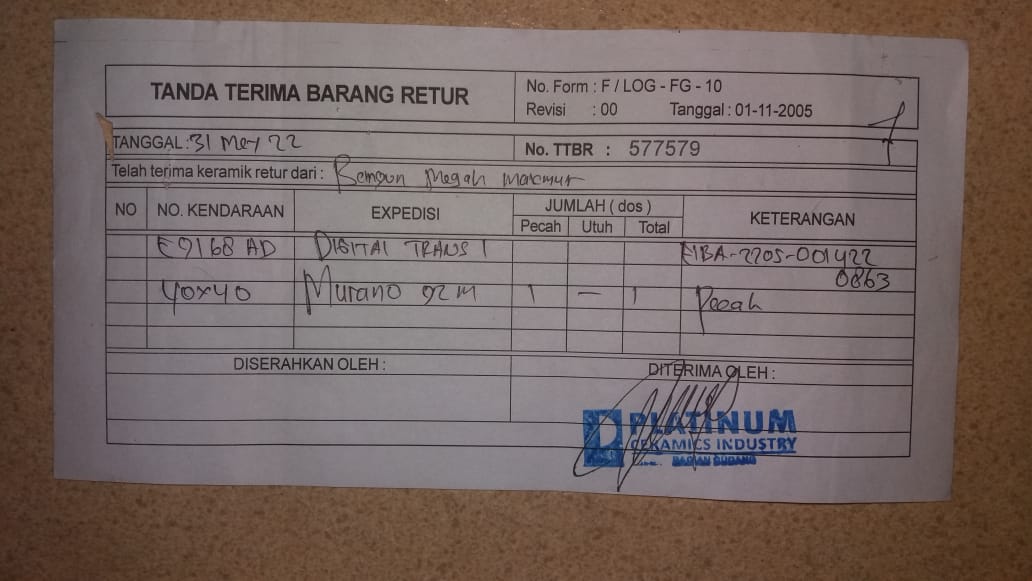 TANDA TERIMA BARANG RETUR
No. Form : F / LOG - FG - 10
Revisi : 00 Tanggal : 01-11-2005
TANGGAL : 31 Mey 22
No. TTBR : 577579
Telah terima keramik retur dari : Megah Makmur
NO NO. KENDARAAN EXPEDISI JUMLAH ( dos ) KETERANGAN
Pecah Utuh Total
E9168 AD DIGITAL TRANS 1 EIBA-2205-001422
0863
40x40 Murano 92 M 1 — 1 Pecah
DISERAHKAN OLEH :
DITERIMA OLEH :
PLATINUM
CERAMICS INDUSTRY
BAGIAN GUDANG